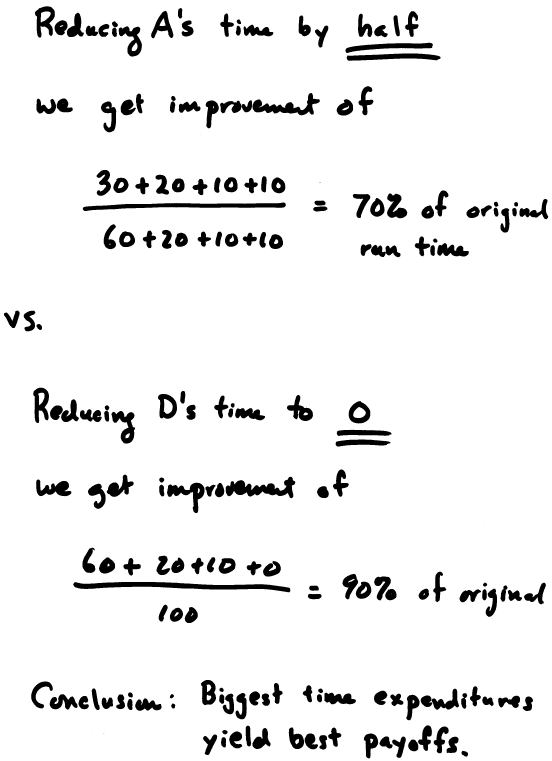 Reducing A's time by half
we get improvement of
30+20+10+10
60+20+10+10
= 70% of original
run time
vs.
Reducing D's time to 0
we get improvement of
60+20+10+0
100
= 90% of original
Conclusion: Biggest time expenditures
yield best payoffs.